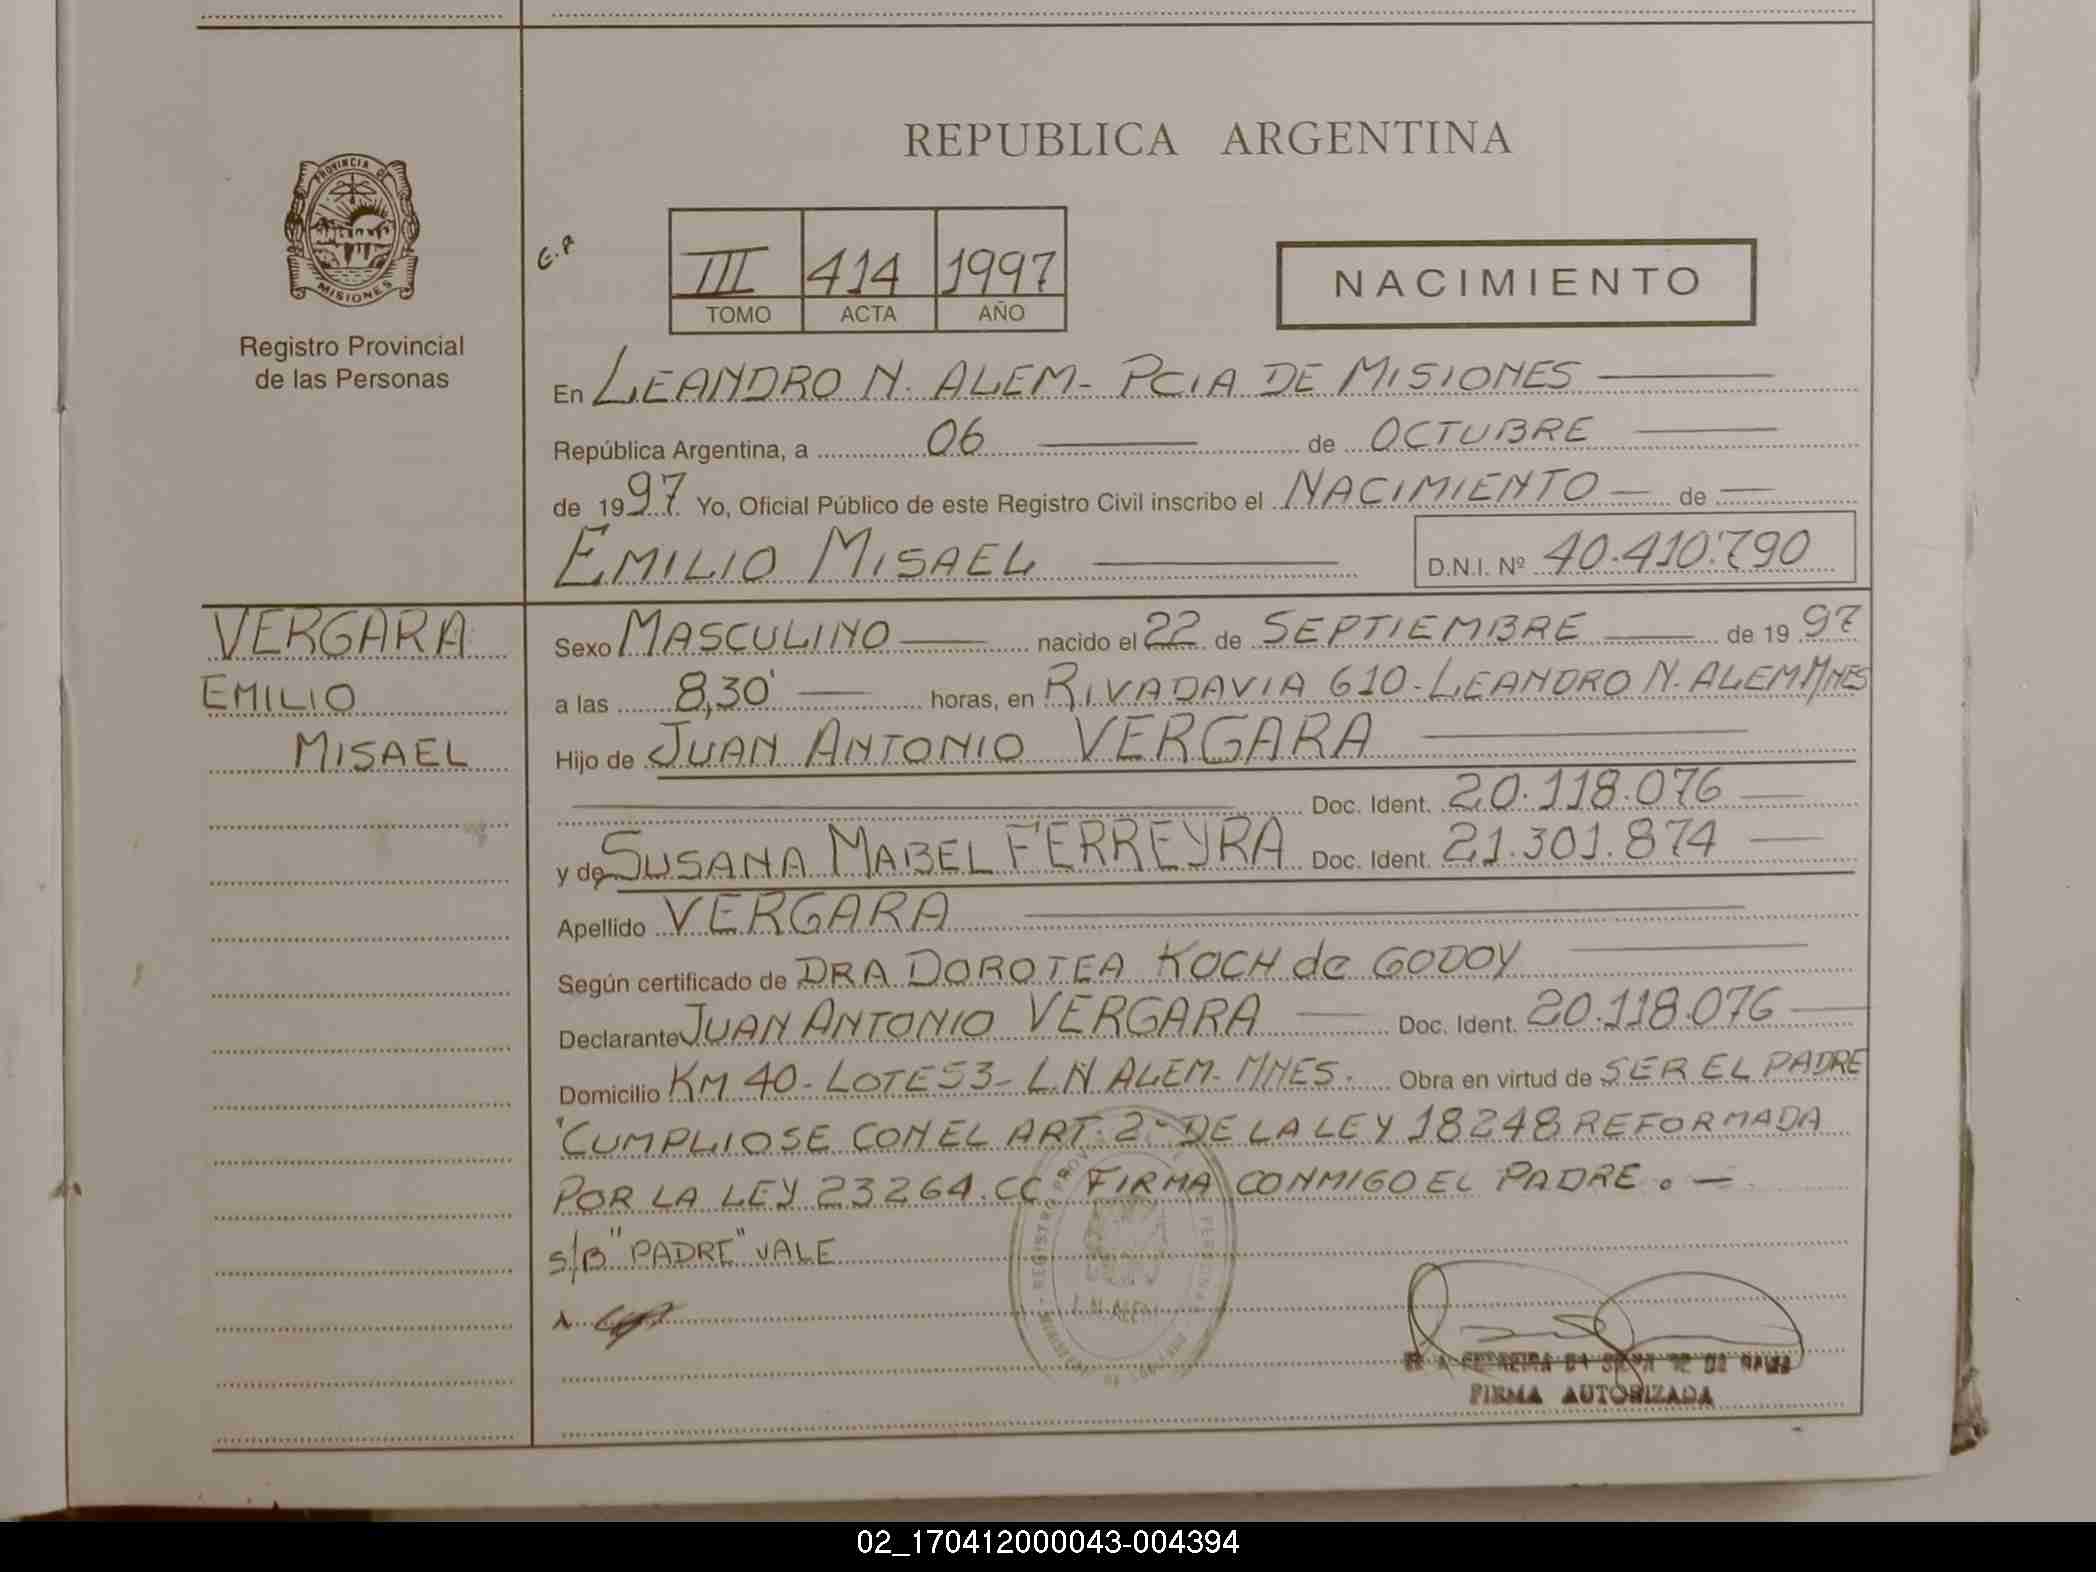 REPUBLICA ARGENTINA
PROVINCIA DE
MISIONES
Registro Provincial
de las Personas
III 414 1997
TOMO ACTA AÑO
NACIMIENTO
En LEANDRO N. ALEM - PCIA DE MISIONES
República Argentina, a 06 de OCTUBRE
de 1997 Yo, Oficial Público de este Registro Civil inscribo el NACIMIENTO de
EMILIO MISAEL D.N.I. Nº 40.410.790
VERGARA
EMILIO
MISAEL
Sexo MASCULINO nacido el 22 de SEPTIEMBRE de 1997
a las 8,30' horas, en RIVADAVIA 610 - LEANDRO N. ALEM MNES
Hijo de JUAN ANTONIO VERGARA
Doc. Ident. 20.118.076
y de SUSANA MABEL FERREYRA Doc. Ident. 21.301.874
Apellido VERGARA
Según certificado de DRA DOROTEA KOCH de GODOY
Declarante JUAN ANTONIO VERGARA Doc. Ident. 20.118.076
Domicilio KM 40 - LOTE 53 - L.N ALEM - MNES. Obra en virtud de SER EL PADRE
"CUMPLIOSE CON EL ART. 2º DE LA LEY 18248 REFORMADA
POR LA LEY 23264. CC FIRMA CONMIGO EL PADRE. -
S/B "PADRE" VALE
L.N. ALEM
FIRMA AUTORIZADA
02_170412000043-004394